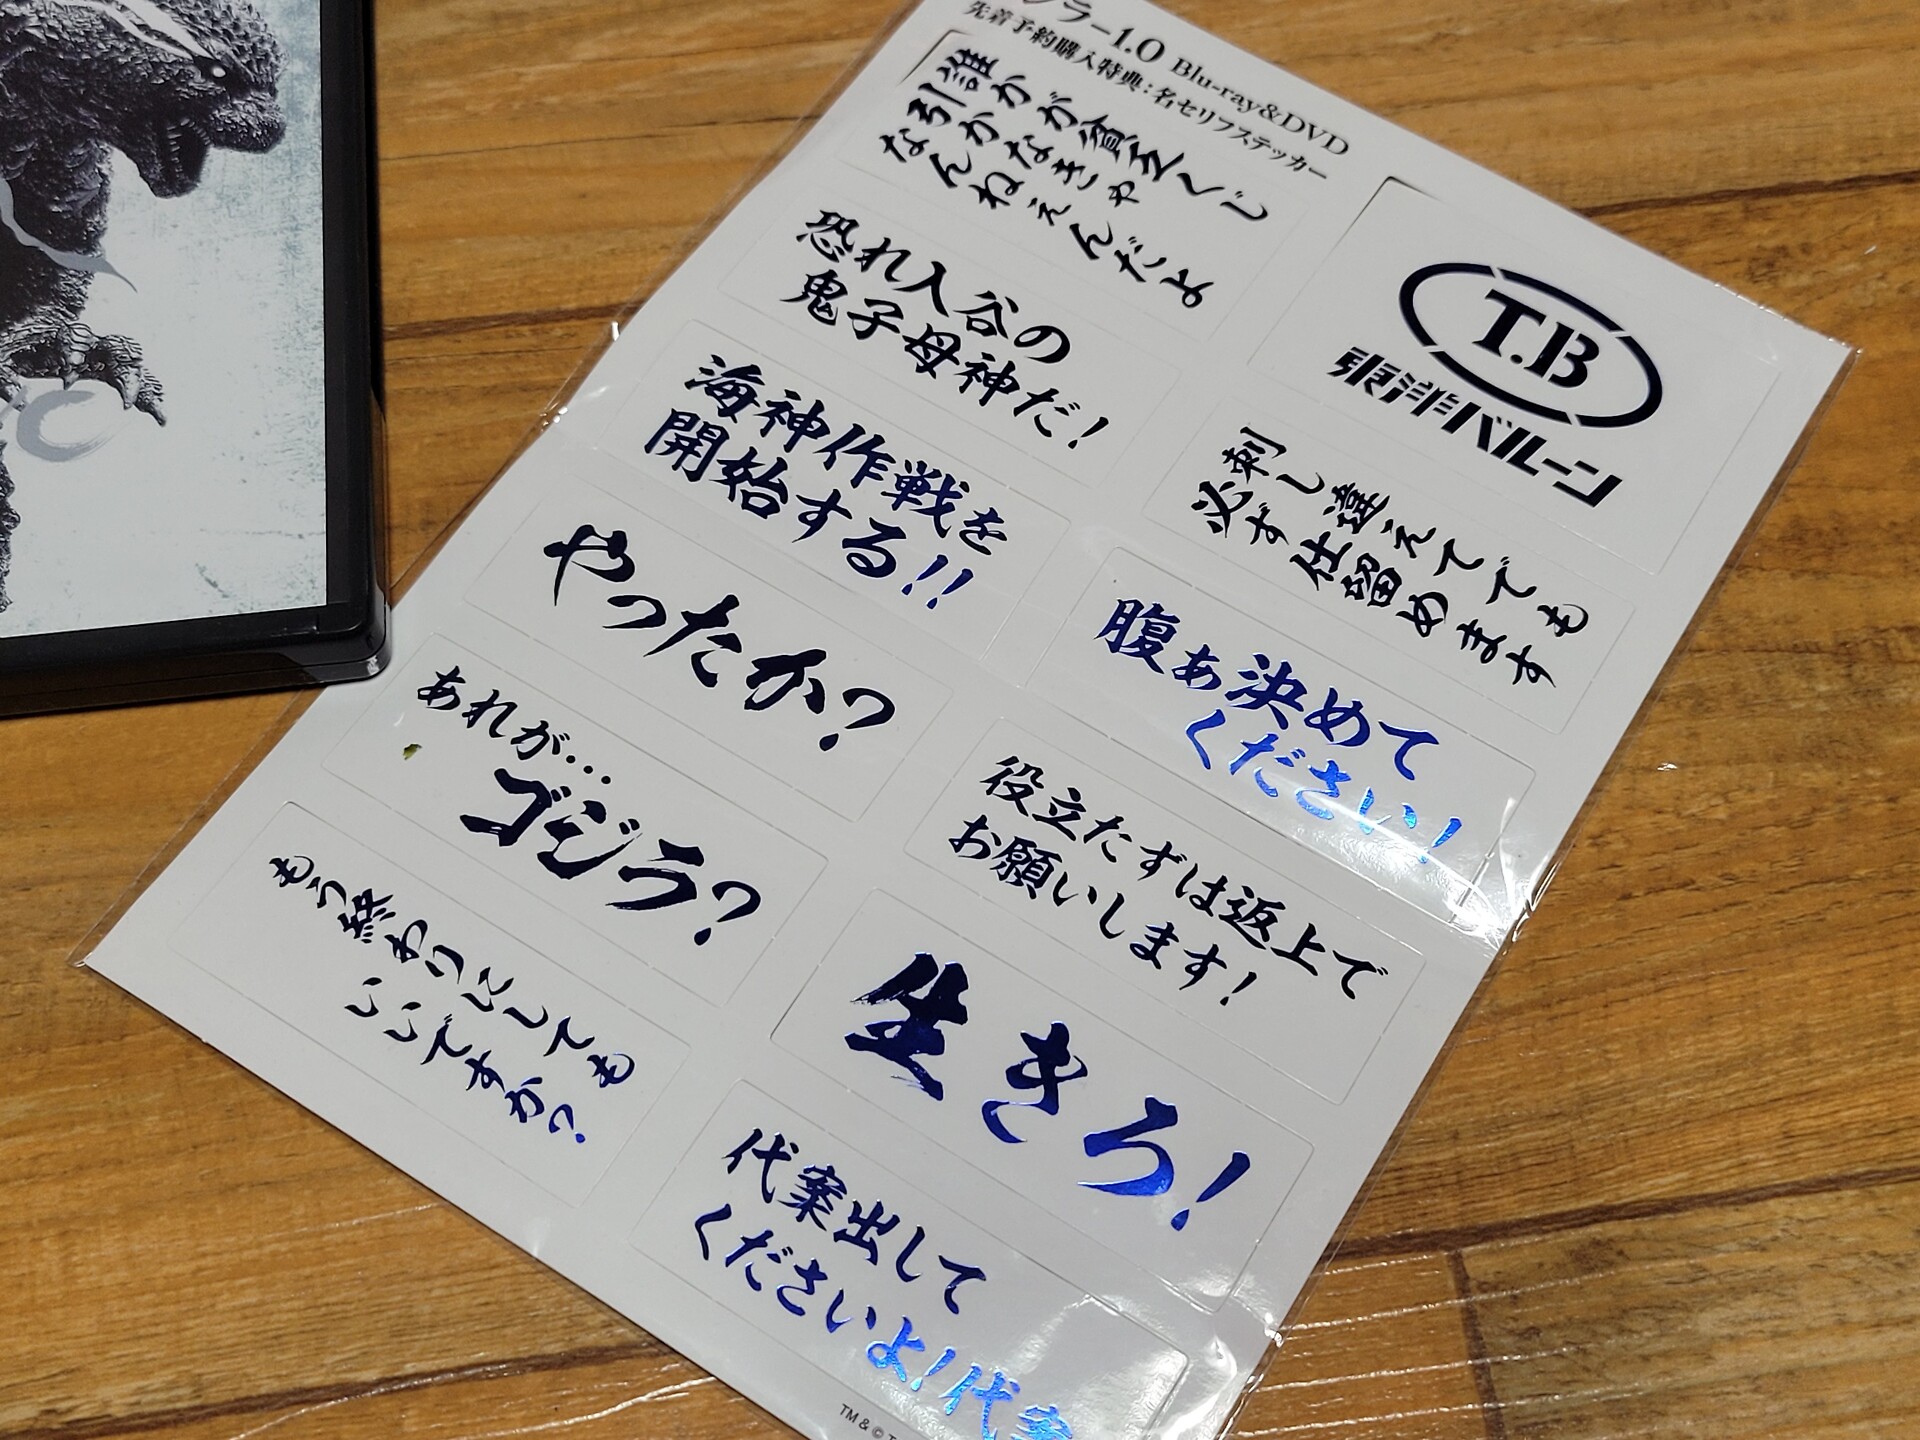 ラ-1.0 Blu-ray&DVD
先着予約購入特典：名セリフステッカー
誰かが貧乏くじ
引かなきゃ
なんねえんだよ
恐れ入谷の
鬼子母神だ！
海神作戦を
開始する!!
やったか？
あれが…
ゴジラ？
もう終わりにしても
いいですか？
T.B
東洋バルーン
刺し違えてでも
必ず仕留めます
腹ぁ決めて
ください！
役立たずは返上で
お願いします！
生きろ！
代案出して
くださいよ！代案
TM & © T